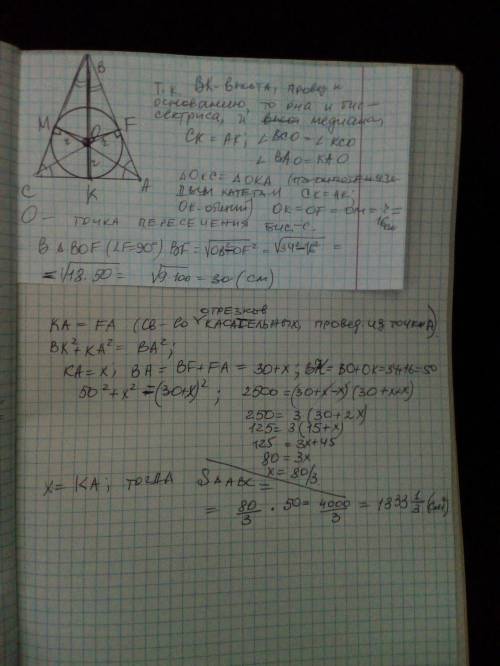 B
M
F
O
r
r
r
C
K
A
Т.к. BK - высота, провед. к
основанию, то она и бис-
сектриса, и медиана,
CK = AK; ∠BCO = ∠KCO
∠BAO = KAO
△OKC = △OKA (по
двум катетам CK = AK;
OK - общий) OK = OF = OM = r =
16см
O - точка пересечения
бис-с.
В △BOF (∠F=90°) BF = √OB²-OF² = √34²-16² =
= √18·50 = √9·100 = 30 (см)
KA = FA (св-во отрезков касательных, провед. из точки A).
BK² + KA² = BA²;
KA = x; BA = BF + FA = 30 + x; BK = BO + OK = 34 + 16 = 50
50² + x² = (30 + x)²; 2500 = (30 + x - x)(30 + x + x)
250 = 3(30 + 2x)
125 = 3(15 + x)
125 = 3x + 45
80 = 3x
x = 80/3
x = KA; тогда S△ABC =
= 80/3 · 50 = 4000/3 = 1333 1/3 (см²)